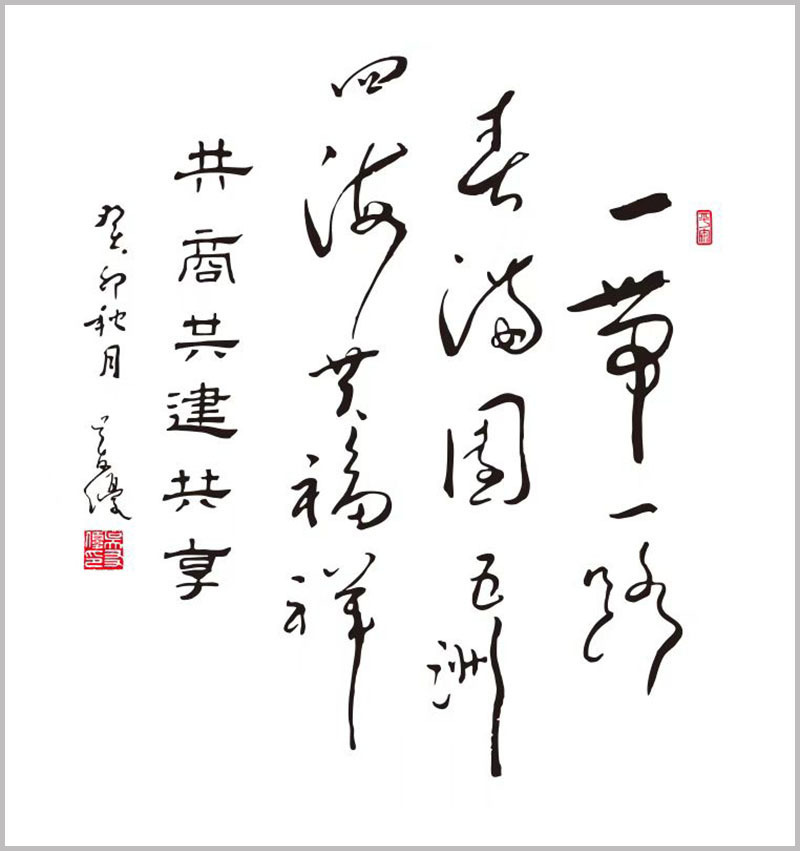 一带一路
春满園五洲
四海共福祥
共商共建共享
癸卯秋月